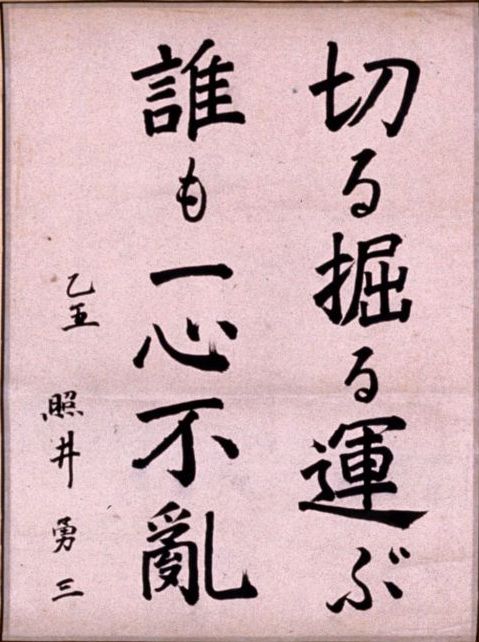 切る掘る運ぶ
誰も一心不亂
乙五 照井勇三